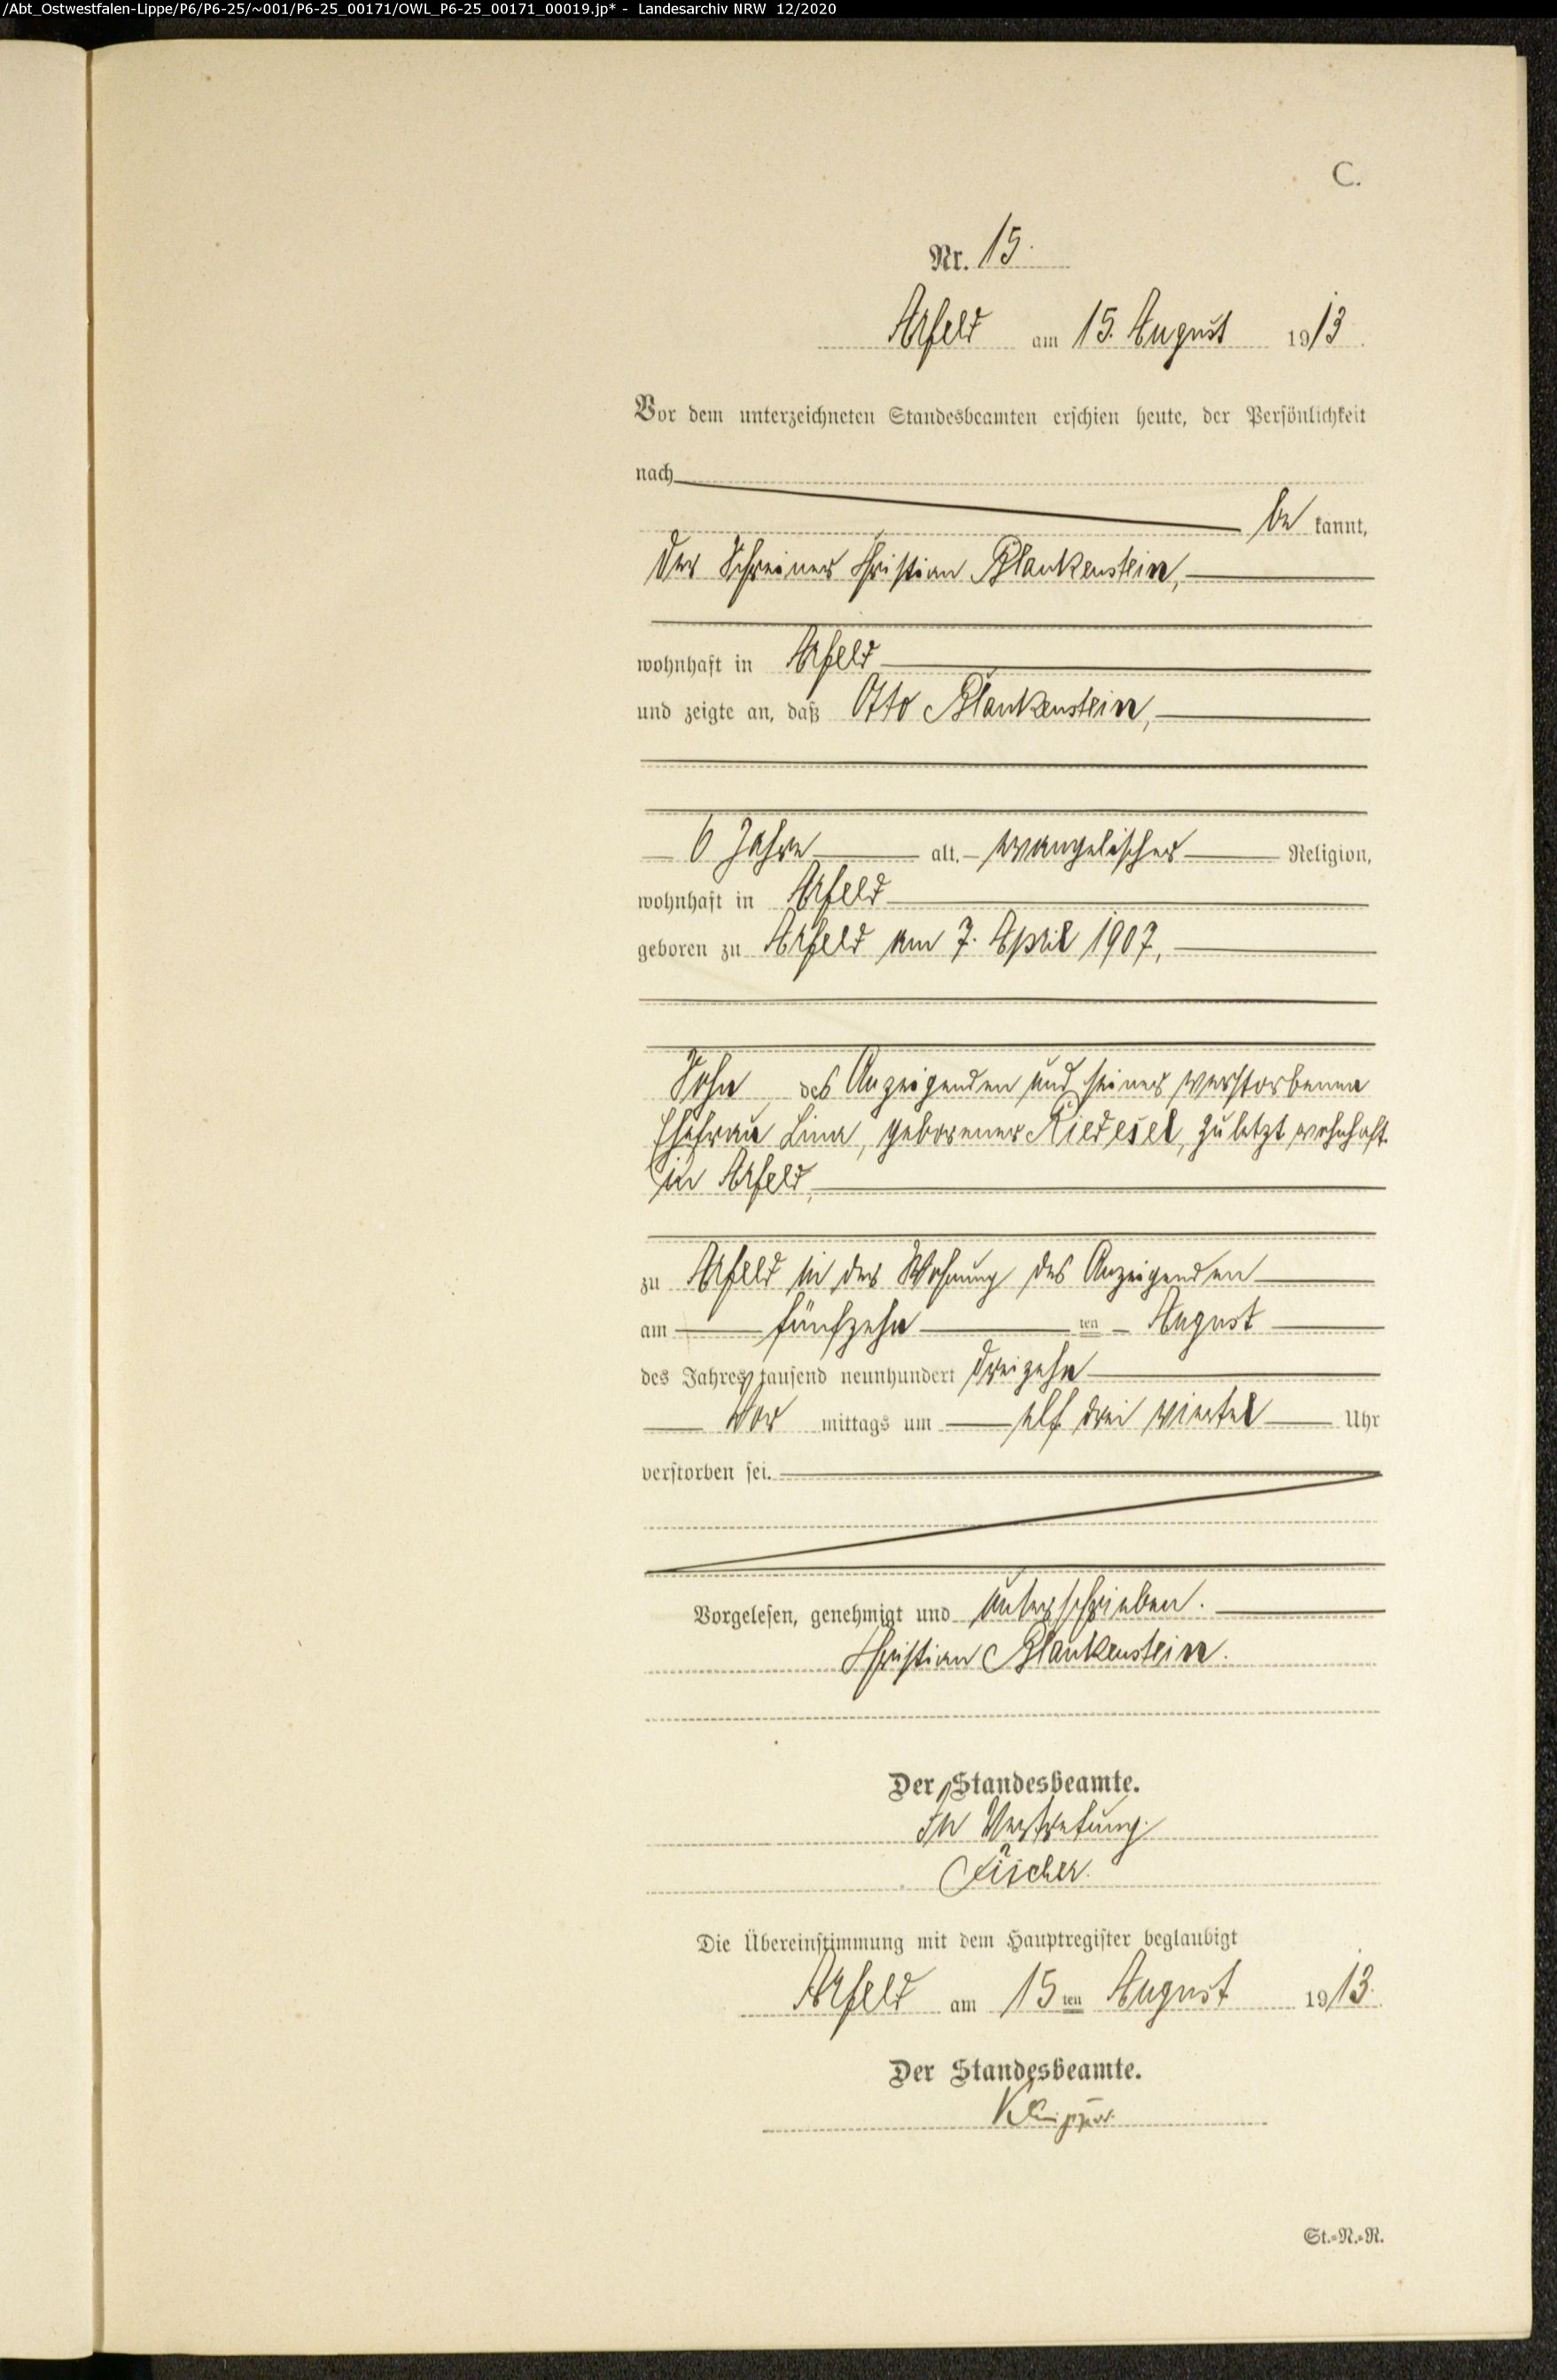 /Abt_Ostwestfalen-Lippe/P6/P6-25/~001/P6-25_00171/OWL_P6-25_00171_00019.jp* - Landesarchiv NRW 12/2020
C.
Nr. 15.
Arfeld am 15. August 1913.
Vor dem unterzeichneten Standesbeamten erschien heute, der Persönlichkeit
nach
be kannt,
der Schreiner Christian Blankenstein,
wohnhaft in Arfeld
und zeigte an, daß Otto Blankenstein,
6 Jahre alt, evangelischer Religion,
wohnhaft in Arfeld
geboren zu Arfeld am 7. April 1907,
Sohn des Anzeigenden und seiner verstorbenen
Ehefrau Lina, geborener Riedesel, zuletzt wohnhaft
in Arfeld,
zu Arfeld in der Wohnung des Anzeigenden
am fünfzehn ten August
des Jahres tausend neunhundert dreizehn
Vor mittags um elf drei viertel Uhr
verstorben sei.
Vorgelesen, genehmigt und unterschrieben.
Christian Blankenstein.
Der Standesbeamte.
In Vertretung.
Fischer.
Die Übereinstimmung mit dem Hauptregister beglaubigt
Arfeld am 15 ten August 1913.
Der Standesbeamte.
St.=N.=R.